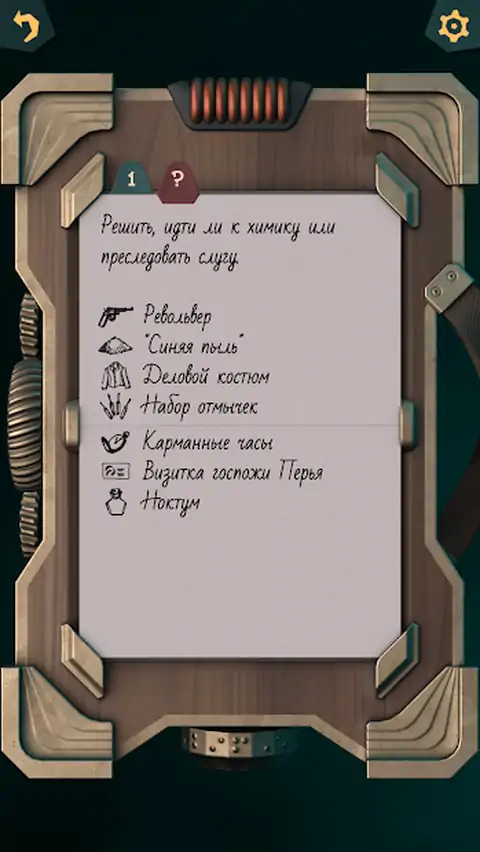 1 ?
Решить, идти ли к химику или
преследовать слугу
Револьвер
"Синяя пыль"
Деловой костюм
Набор отмычек
Карманные часы
Визитка госпожи Перья
Ноктум